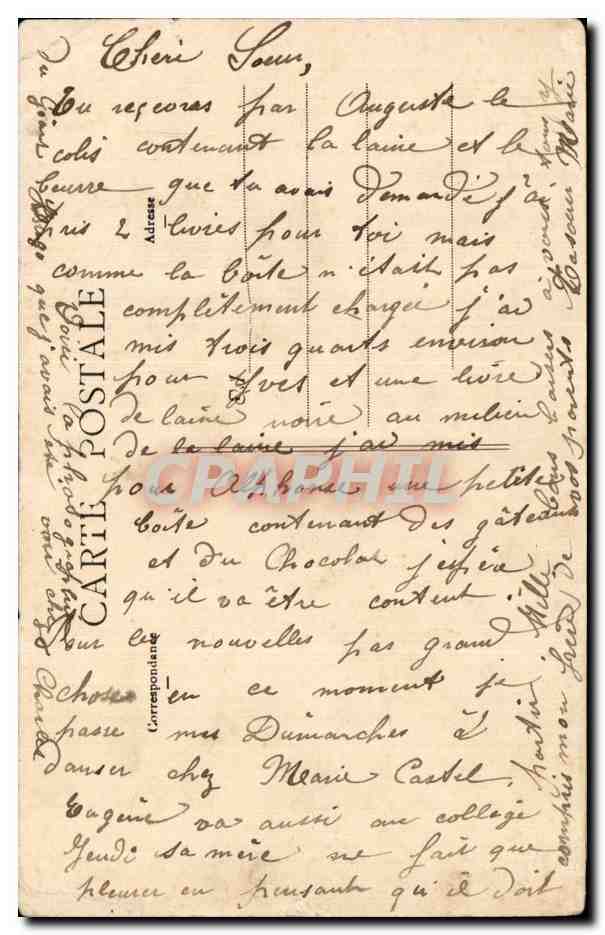 Chéri Soeur,
Tu reçevras par Auguste le
colis contenant la laine et le
beurre que tu avais demandé j'ai
pris 2 livres pour toi mais
comme la boîte n'était pas
complètement chargée j'ai
mis trois quarts environ
pour Yves et une livre
de laine noire au milieu
de la laine j'ai mis
pour Alphonse une petite
boîte contenant des gâteaux
et du Chocolat j'espère
qu'il va être content.
sur les nouvelles pas grand
chose en ce moment je
passe mes Dimanches à
danser chez Marie Castel,
Eugène va aussi au collège
Jeudi sa mère ne fait que
pleurer en pensant qu'il doit
partir. Mille bons baisers à vous tous y
compris mon frère de vos parents Ta soeur Marie
Voir la photographie
du que j'avais été voir chez Charles
CARTE POSTALE
Correspondance
Adresse
CPAPHIL